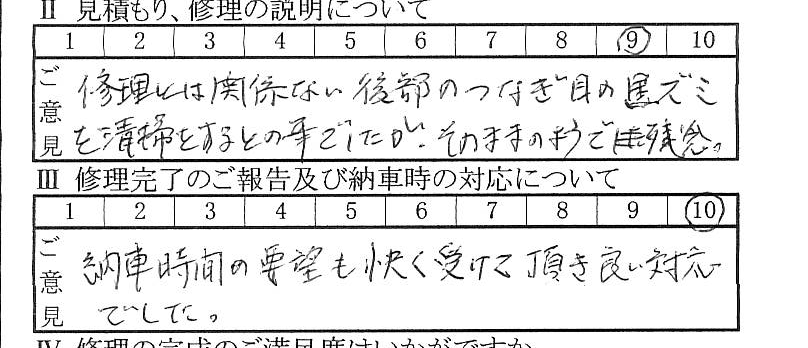 Ⅱ 見積もり、修理の説明について
1 2 3 4 5 6 7 8 9 10
ご意見
修理とは関係ない後部のつなぎ目の黒ズミ
を清掃をするとの事でしたが、そのままのようで残念。
Ⅲ 修理完了のご報告及び納車時の対応について
1 2 3 4 5 6 7 8 9 10
ご意見
納車時間の要望も快く受けて頂き良い対応
でした。
Ⅳ 修理の完成のご満足度はいかがですか